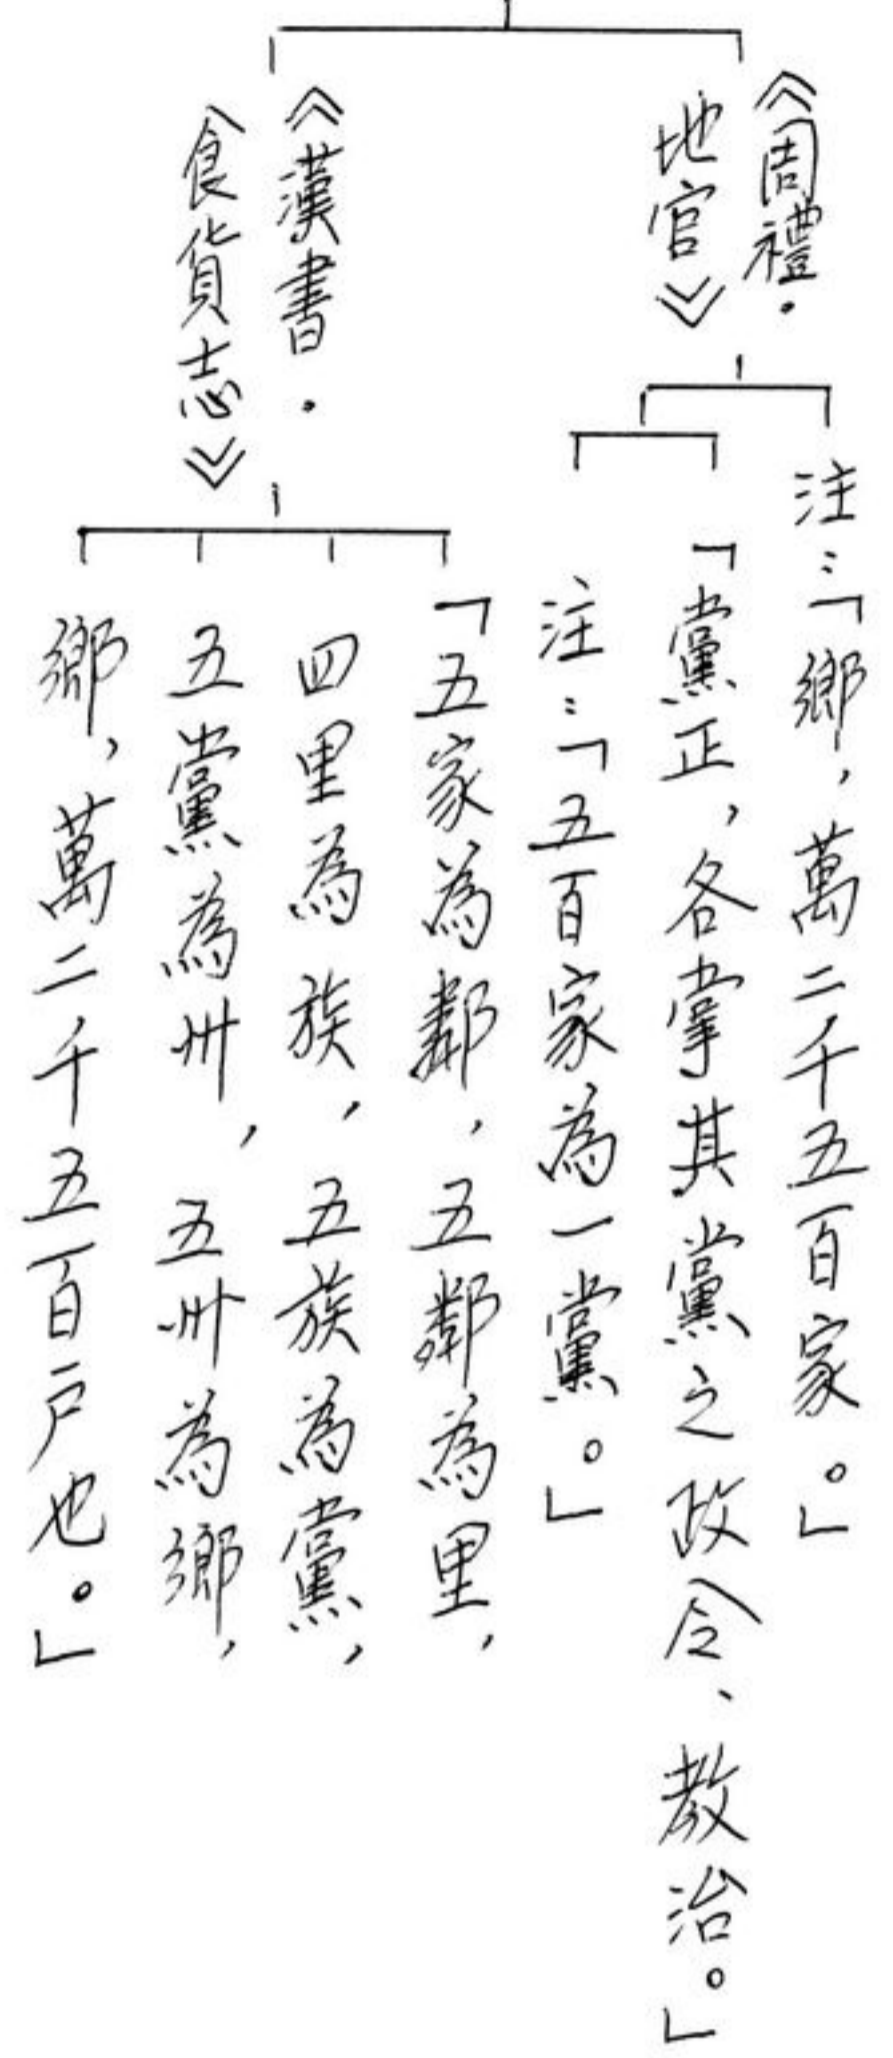 《周禮．
地官》
注：「鄉，萬二千五百家。」
「黨正，各掌其黨之政令、教治。」
注：「五百家為一黨。」
《漢書．
食貨志》
「五家為鄰，五鄰為里，
四里為族，五族為黨，
五黨為州，五州為鄉，
鄉，萬二千五百戶也。」